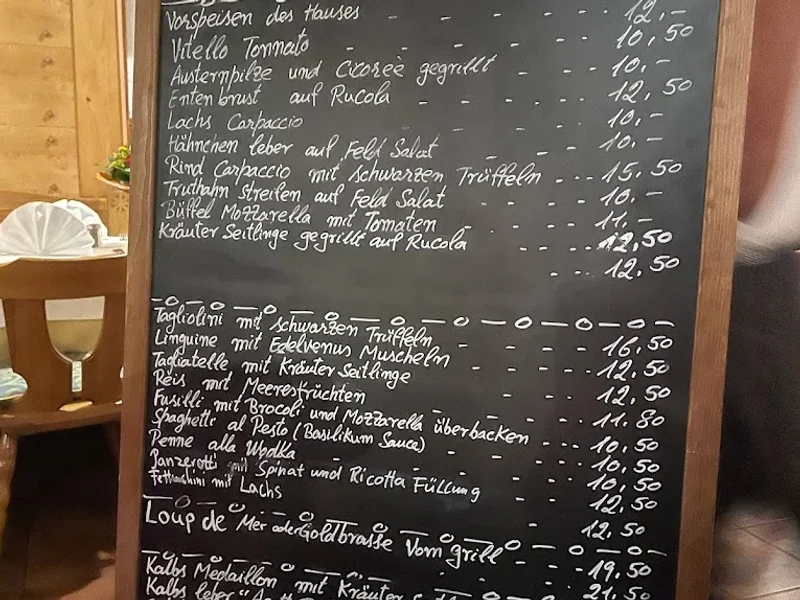 Vorspeisen des Hauses - - - - - 12,-
Vitello Tonnato - - - - - 10,50
Austernpilze und Cicorèe gegrillt - - - 10,-
Entenbrust auf Rucola - - - - - 12,50
Lachs Carpaccio - - - - - 10,-
Hähnchen leber auf Feld Salat - - - 10,-
Rind Carpaccio mit schwarzen Trüffeln - - - 15,50
Truthahn Streifen auf Feld Salat - - - 10,-
Büffel Mozzarella mit Tomaten - - - - 11,-
Kräuter Seitlinge gegrillt auf Rucola - - - 12,50
- - - 12,50
Tagliolini mit schwarzen Trüffeln - - - - 16,50
Linguine mit Edelvenus Muscheln - - - - 12,50
Tagliatelle mit Kräuter Seitlinge - - - 12,50
Reis mit Meeresfrüchten - - - - 11,80
Fusilli mit Brocoli und Mozzarella überbacken - - - 10,50
Spaghetti al Pesto (Basilikum Sauce) - - - - 10,50
Penne alla Wodka - - - - 10,50
Panzerotti mit Spinat und Ricotta Füllung - - - 12,50
Fettuchini mit Lachs - 12,50
Loup de Mer oder Goldbrasse Vom grill - - - 19,50
Kalbs Medaillon mit Kräuter - - - 21,50
Kalbs leber